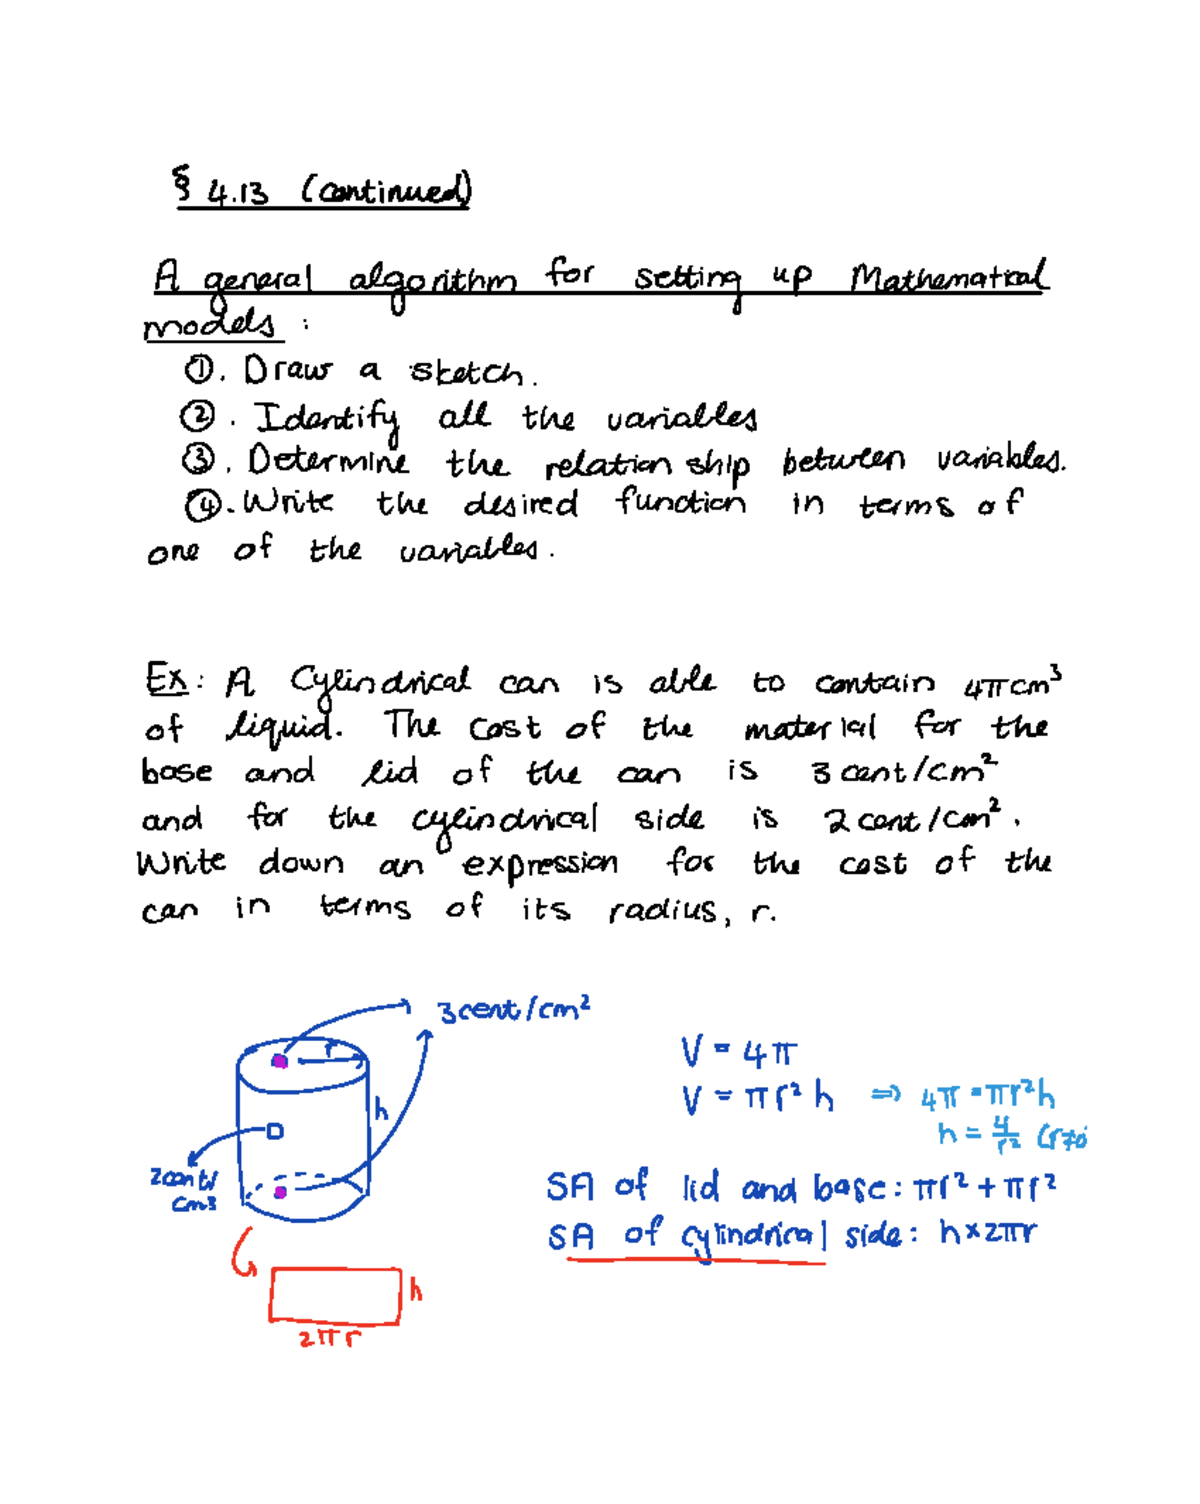 § 4.13 (continued)
A general algorithm for setting up Mathematical
models :
①. Draw a sketch.
②. Identify all the variables
③. Determine the relation ship between variables.
④. Write the desired function in terms of
one of the variables.
Ex: A Cylindrical can is able to contain 4πcm³
of liquid. The cost of the material for the
base and lid of the can is 3 cent/cm²
and for the cylindrical side is 2 cent/cm².
Write down an expression for the cost of the
can in terms of its radius, r.
3cent/cm²
r
h
2cent/
cm3
h
2πr
V = 4π
V = πr²h ⇒ 4π = πr²h
h = 4/r² (r≠0
SA of lid and base: πr² + πr²
SA of cylindrical side: h×2πr